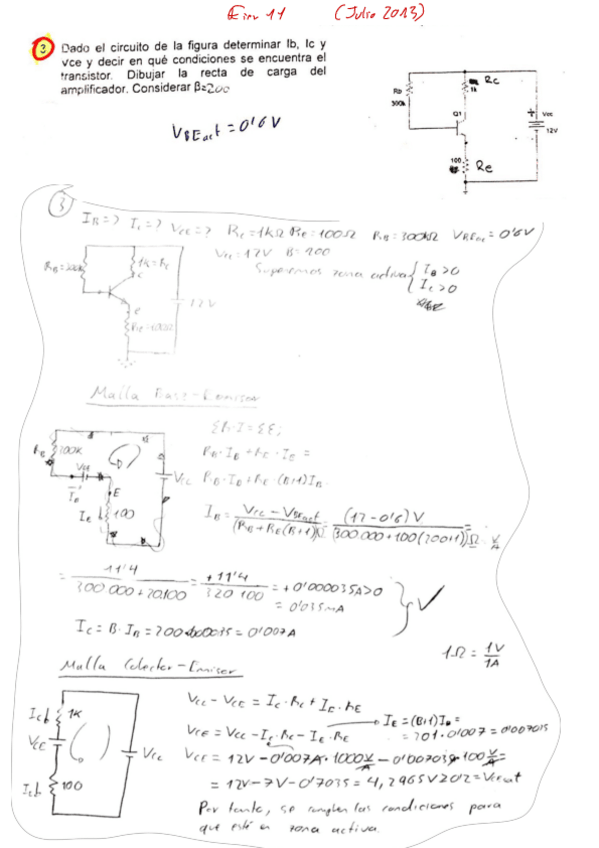 (Julio 2013)
3 Dado el circuito de la figura determinar Ib, Ic y
vce y decir en qué condiciones se encuentra el
transistor. Dibujar la recta de carga del
amplificador. Considerar β=200
VBEact = 0'6V
Rb
300k
Rc
1k
Q1
+ Vcc
12V
100
Re
3
IB=? IC=? VCE=? RC=1kΩ RE=100Ω RB=300kΩ VBEact=0'6V
VCC=12V B=200
Suponemos zona activa { IB>0
IC>0
RB=300k
1k=RC
c
e
RE=100Ω
12V
Malla Base-Emisor
ΣR·I=ΣE;
RB·IB+RE·IE=
RB·IB+RE·(B+1)IB
RB
300k
VCC
IB
E
IE 100
IB = VCC - VBEact / (RB+RE(B+1))Ω = (12-0'6)V / (300.000+100(200+1))Ω
= 11'4 / 300 000+20.100 = +11'4 / 320 100 = +0'000035A>0
= 0'035mA
IC = B·IB = 200·0'000035 = 0'007A
1Ω = 1V / 1A
Malla Colector-Emisor
VCC - VCE = IC·RC + IE·RE
VCE = VCC - IC·RC - IE·RE
IE = (B+1)IB =
= 201·0'007 = 0'007035
VCE = 12V - 0'007A·1000 V/A - 0'007035·100 V/A =
= 12V - 7V - 0'7035 = 4,2965V>0'2=VCEsat
Por tanto, se cumplen las condiciones para
que esté en zona activa.
IC
1k
VCE
VCC
100